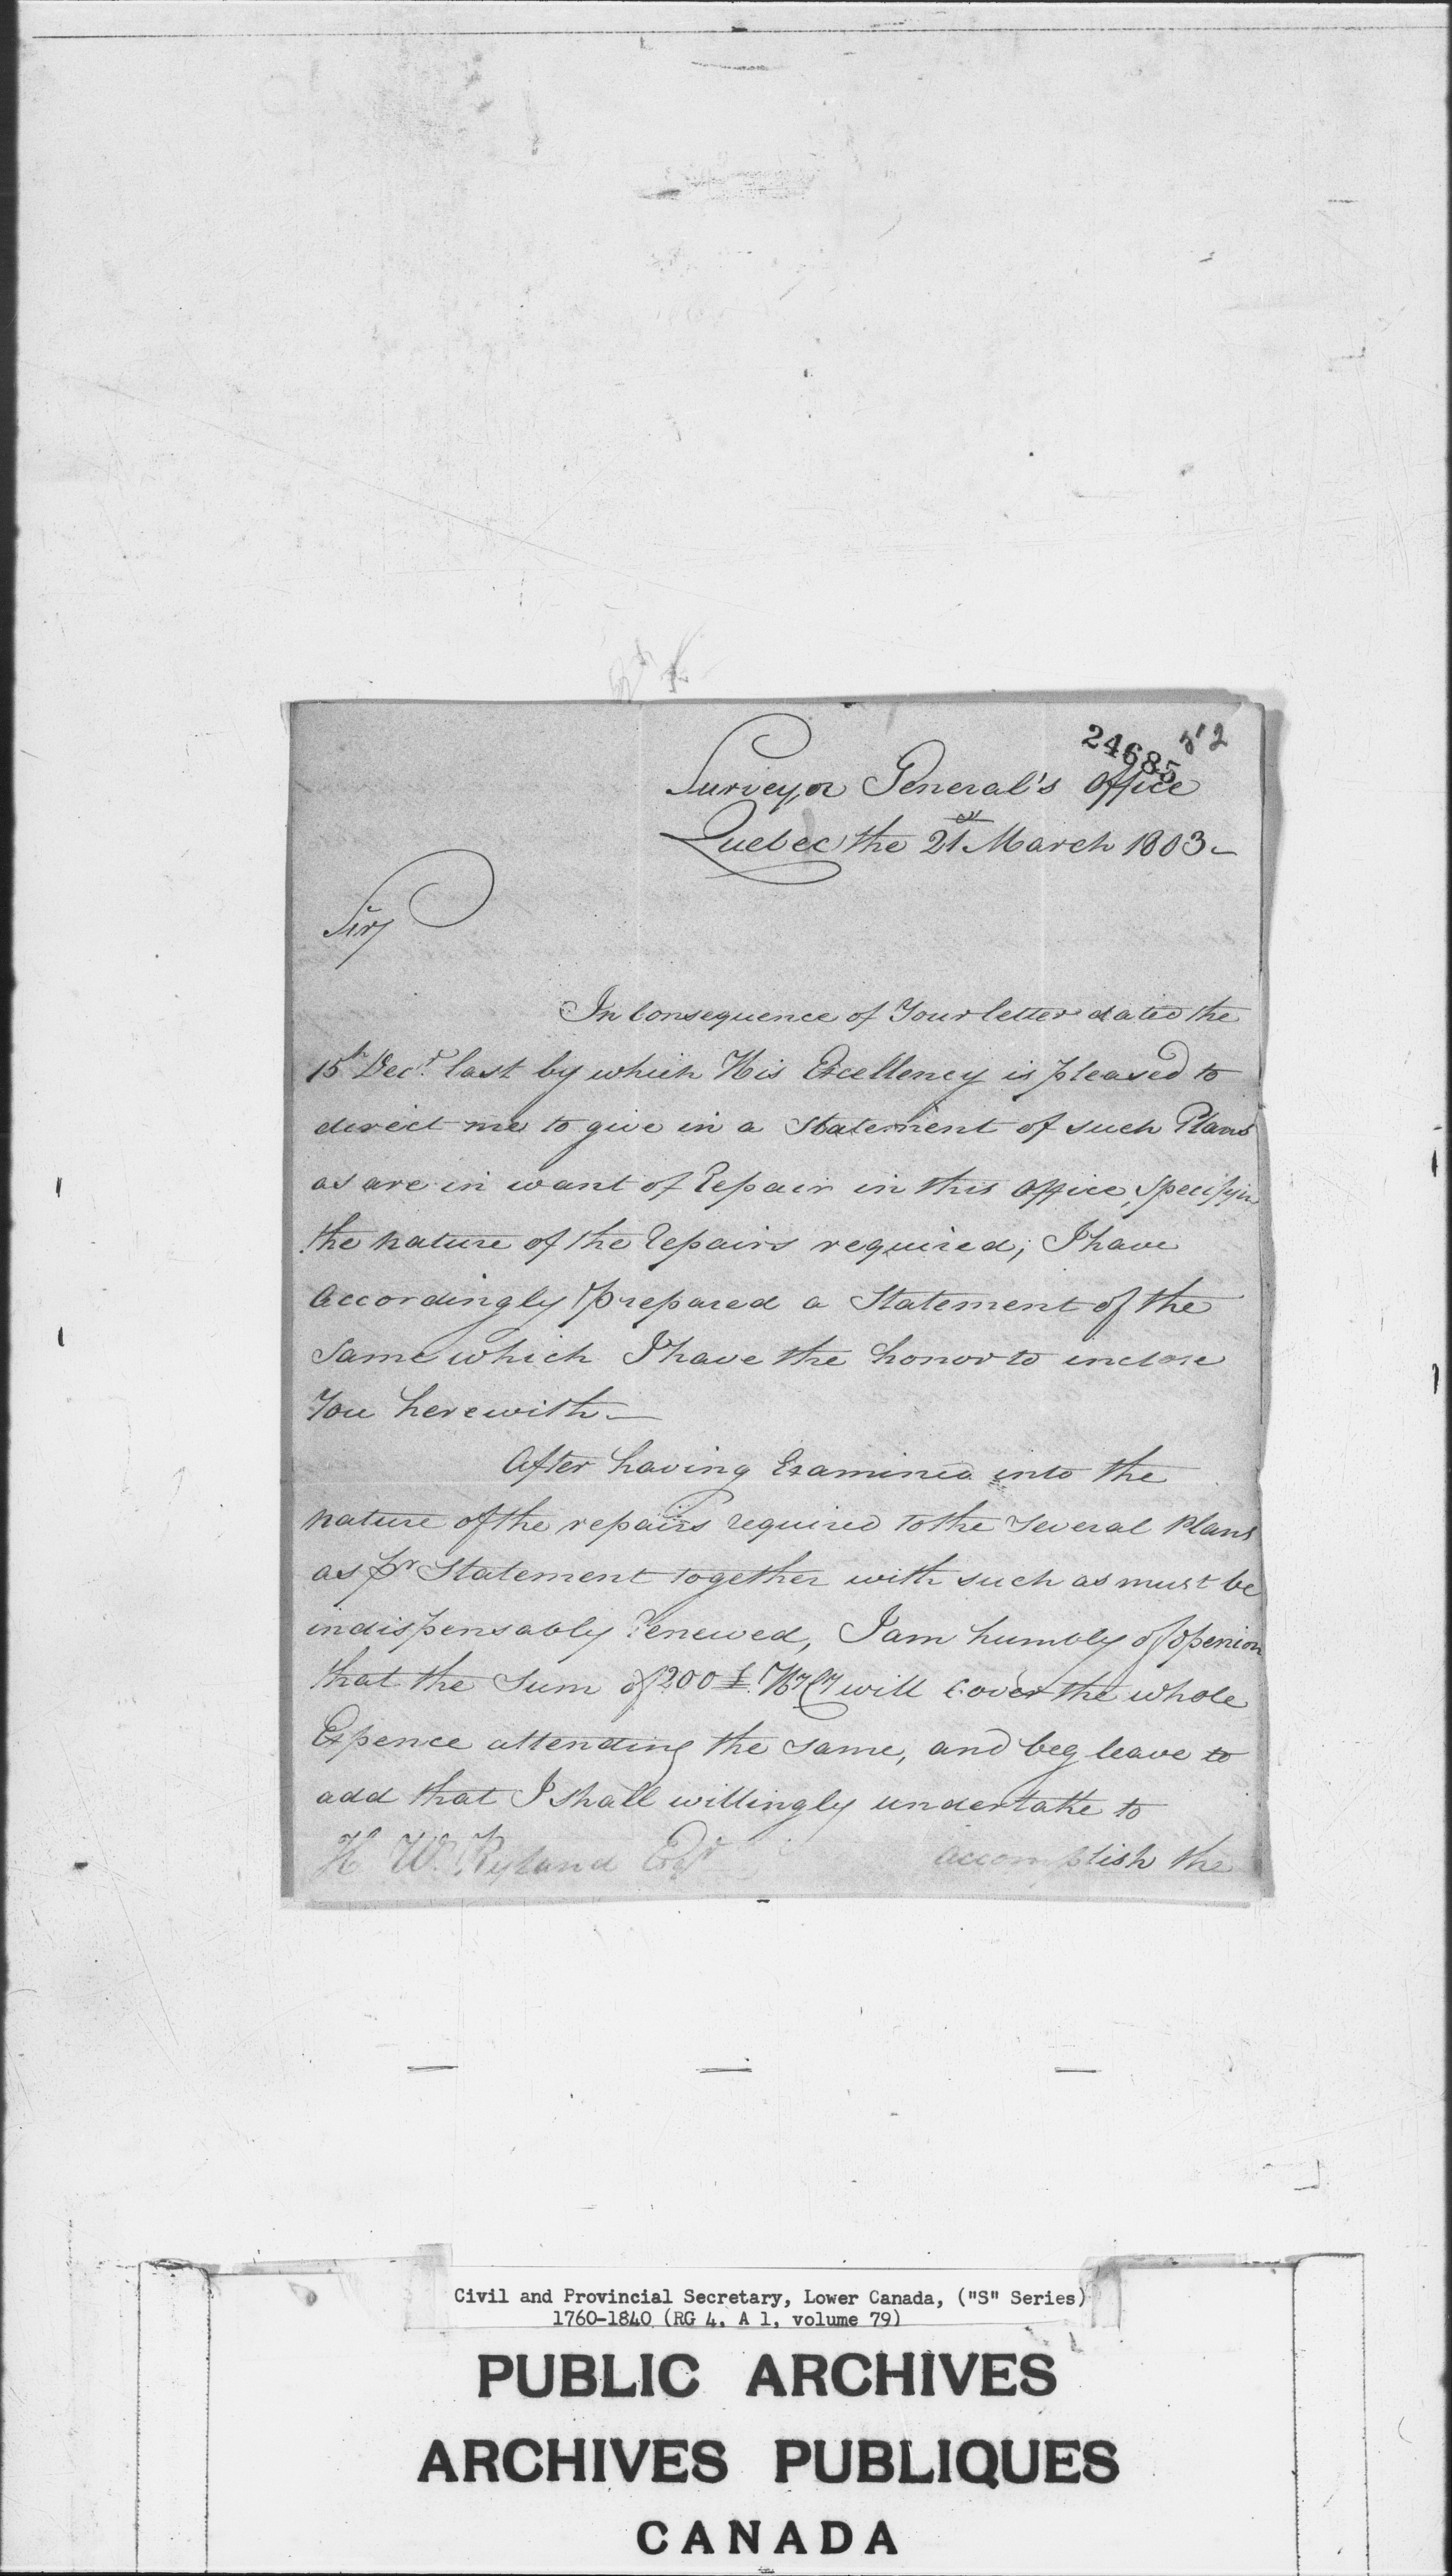 24685
Surveyor General's Office
Quebec the 21st March 1803-
Sir,
In Consequence of Your letter dated the
15th Decr. last by which His Excellency is pleased to
direct me to give in a Statement of such Plans
as are in want of Repair in this Office, Specifyin
the nature of the Repairs required; I have
Accordingly prepared a Statement of the
Same which I have the honor to inclose
You herewith-
After having Examined into the
nature of the repairs required to the Several Plans
as pr Statement together with such as must be
indispensably Renewed, I am humbly of openion
that the Sum of 200£ Hy Cy will cover the whole
Expence attending the same, and beg leave to
add that I shall willingly undertake to
H W. Ryland Esqr accomplish the
Civil and Provincial Secretary, Lower Canada, ("S" Series)
1760-1840 (RG 4, A 1, volume 79)
PUBLIC ARCHIVES
ARCHIVES PUBLIQUES
CANADA